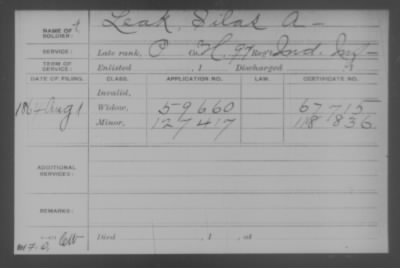 NAME OF SOLDIER: Leak, Silas A—
SERVICE: Late rank, P Co. H, 97 Reg't Ind. Inf—
TERM OF SERVICE: Enlisted , 1 Discharged , 1
DATE OF FILING. CLASS. APPLICATION NO. LAW. CERTIFICATE NO.
Invalid,
1864 Aug 1 Widow, 59660 67715
Minor, 127417 118836
ADDITIONAL SERVICES:
REMARKS:
Died , 1 , at